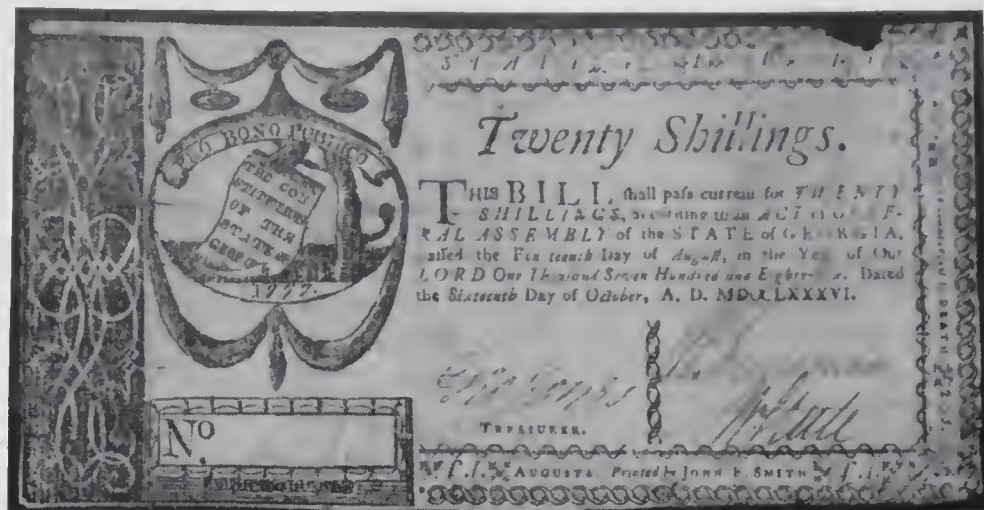 PRO BONO PUBLICO
THE CON
STITUTION
OF THE
STATE of
GEORGIA
1777.
No.
Twenty Shillings.
THIS BILL shall pass current for TWENTY
SHILLINGS, according to an ACT of GENE-
RAL ASSEMBLY of the STATE of GEORGIA,
passed the Day of August, in the Year of Our
LORD One Thousand Seven Hundred and Eighty-Six. Dated
the Sixteenth Day of October, A. D. MDCCLXXXVI.
TREASURER.
AUGUSTA. Printed by JOHN E. SMITH
DEATH